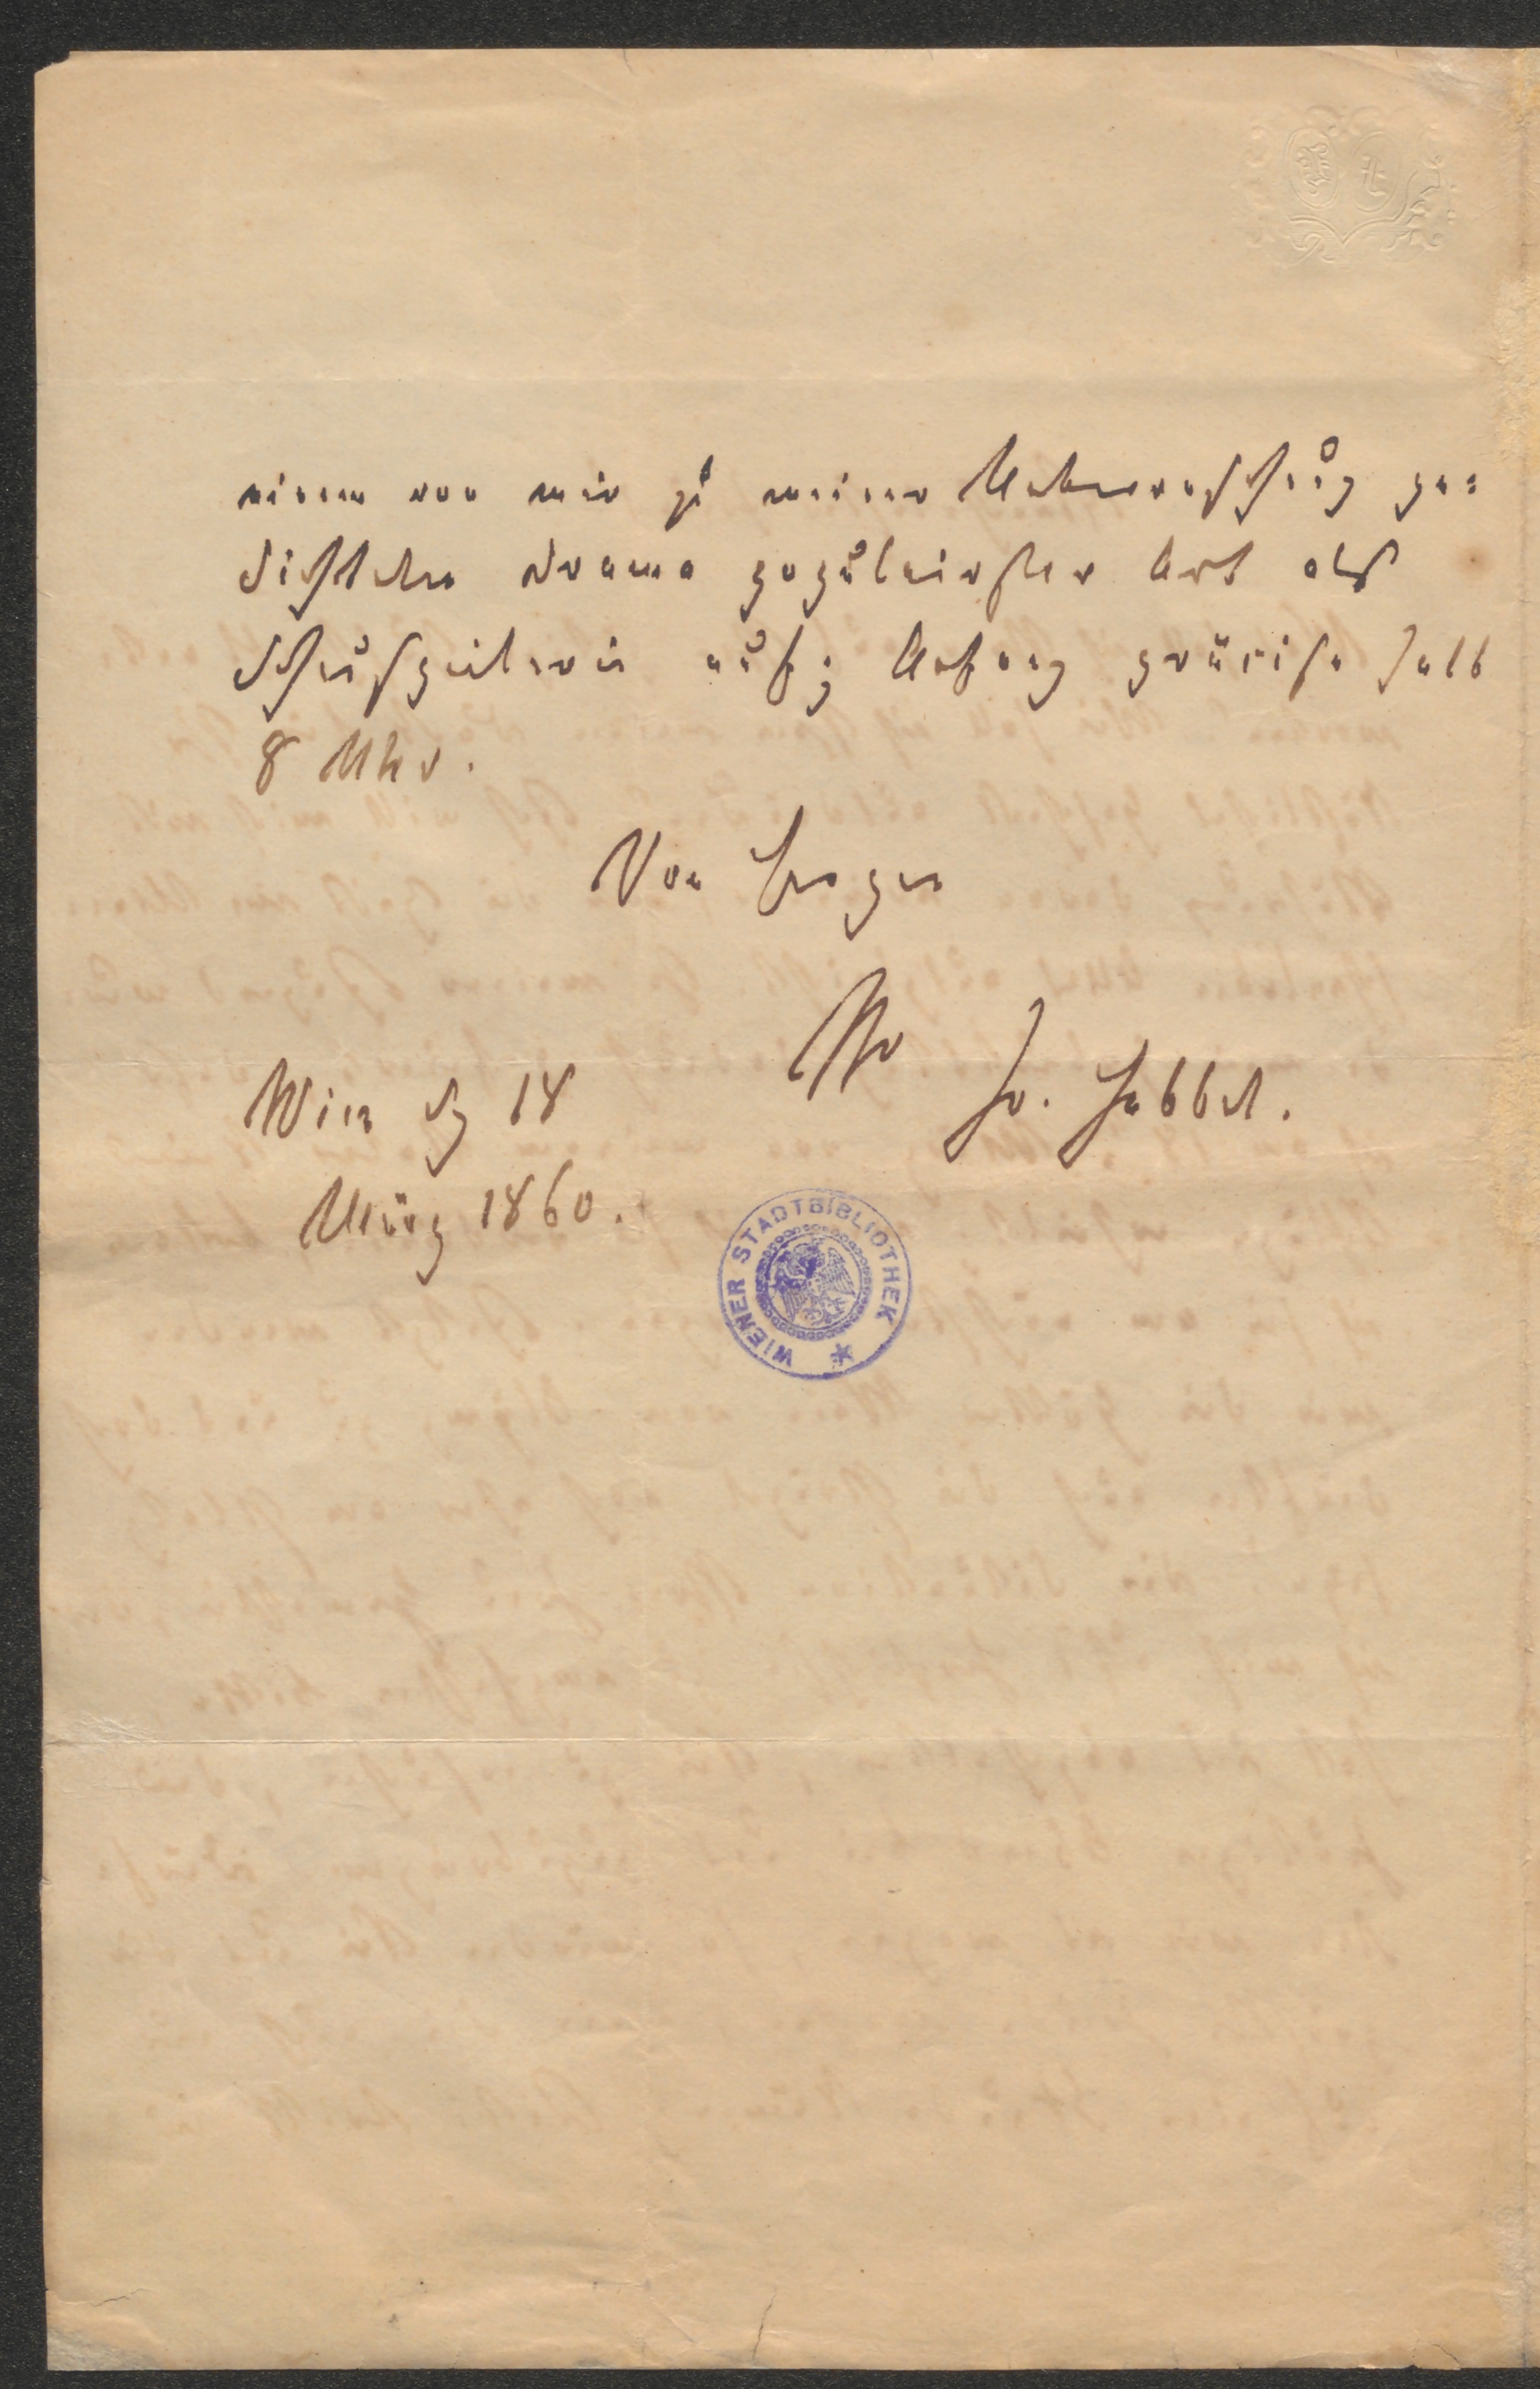 einem von mir zu meiner Ueberraschung ge=
dichteten Drama populairster Art als
Schauspielerin auf; Anfang präcise halb
8 Uhr.
Von Herzen
Ihr
Fr. Hebbel.
Wien 18
März 1860.
WIENER STADTBIBLIOTHEK